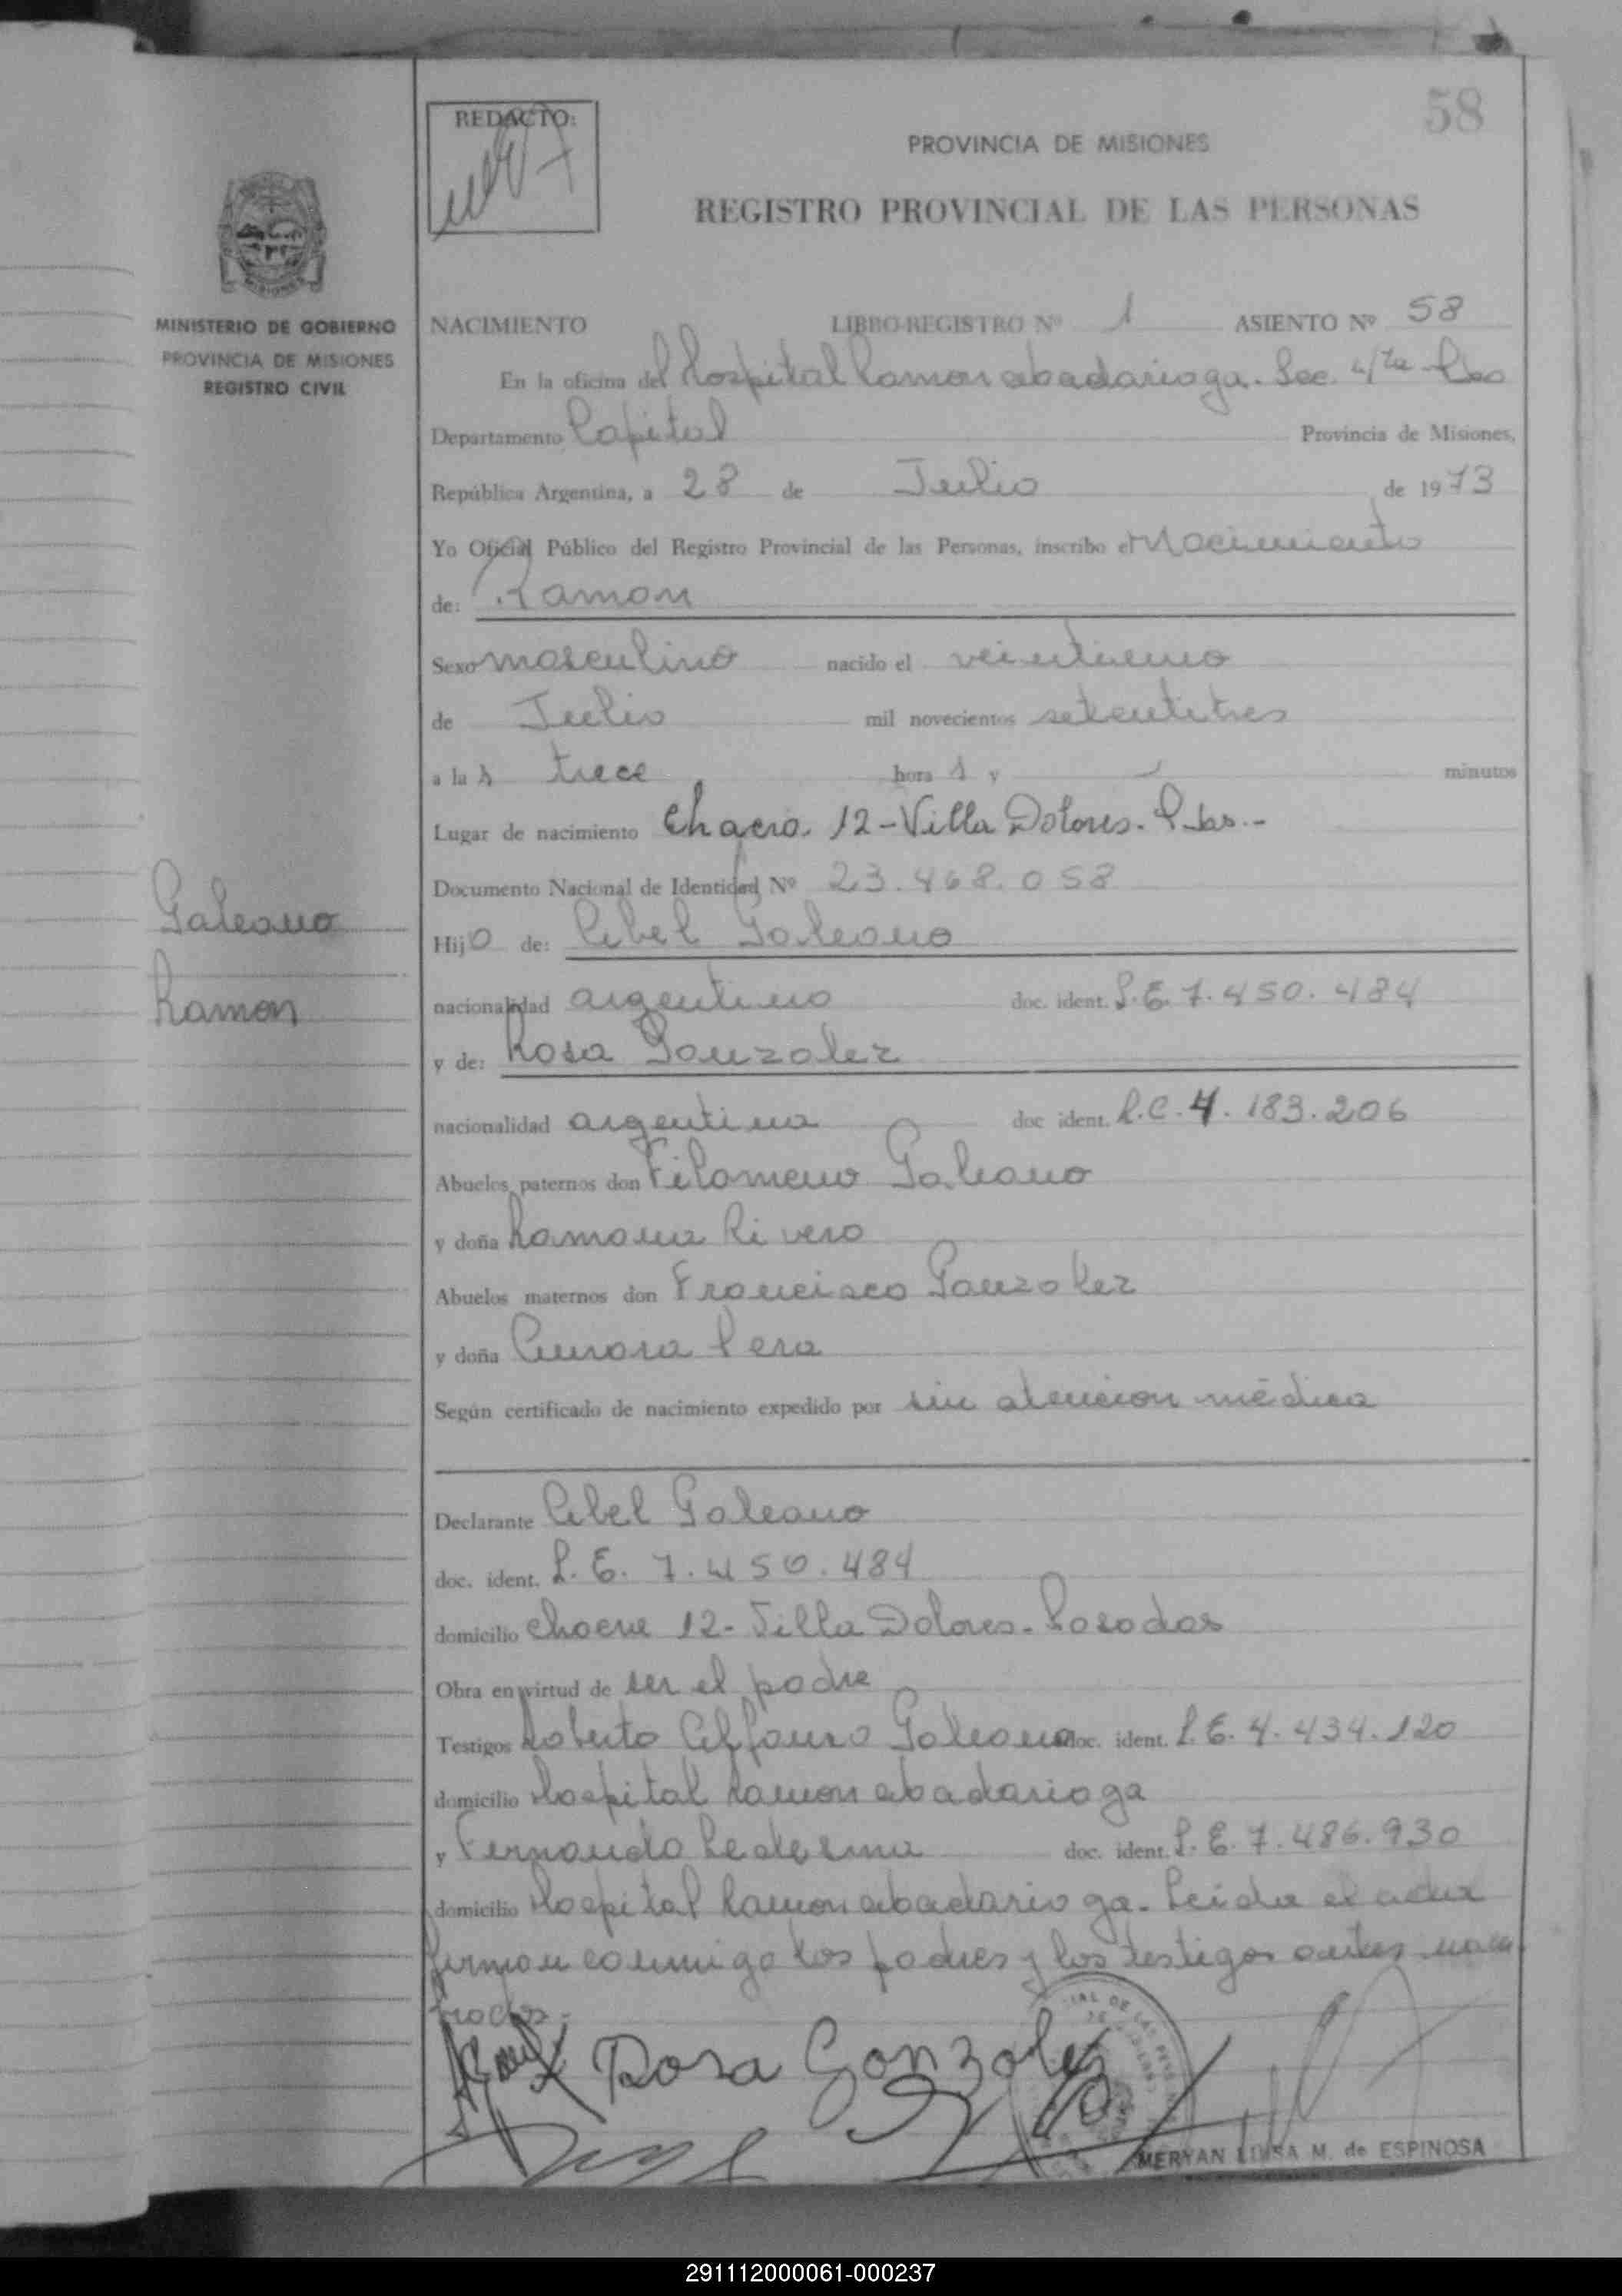 58
REDACTO:
PROVINCIA DE MISIONES
REGISTRO PROVINCIAL DE LAS PERSONAS
MINISTERIO DE GOBIERNO
PROVINCIA DE MISIONES
REGISTRO CIVIL
NACIMIENTO LIBRO-REGISTRO Nº 1 ASIENTO Nº 58
En la oficina del Hospital Ramon abadarioga. Sec. 4/ta
Departamento Capital Provincia de Misiones,
República Argentina, a 28 de Julio de 1973
Yo Oficial Público del Registro Provincial de las Personas, inscribo el Nacimiento
de: Ramon
Sexo masculino nacido el veintiuno
de Julio mil novecientos setentitres
a la s trece hora s y - minutos
Lugar de nacimiento Chacra 12-Villa Dolores. Pdas.-
Documento Nacional de Identidad Nº 23.468.058
Galeano
Hijo de: Abel Galeano
nacionalidad argentino doc. ident. L.E. 7.450.484
Ramon
y de: Rosa Gonzalez
nacionalidad argentina doc ident. L.C. 4.183.206
Abuelos paternos don Filomeno Galeano
y doña Ramona Rivero
Abuelos maternos don Francisco Gonzalez
y doña Aurora Pera
Según certificado de nacimiento expedido por sin atencion médica
Declarante Abel Galeano
doc. ident. L.E. 7.450.484
domicilio chacra 12-Villa Dolores-Posadas
Obra en virtud de ser el padre
Testigos Roberto Alfonso Galeano doc. ident. L.E. 4.434.120
domicilio Hospital Ramon abadarioga
y Fernando Ledesma doc. ident. L.E. 7.486.930
domicilio Hospital Ramon abadarioga. Leida el acta
firman conmigo los padres y los testigos antes nom
brados.
Rosa Gonzalez
MERYAN LUISA M. de ESPINOSA
291112000061-000237